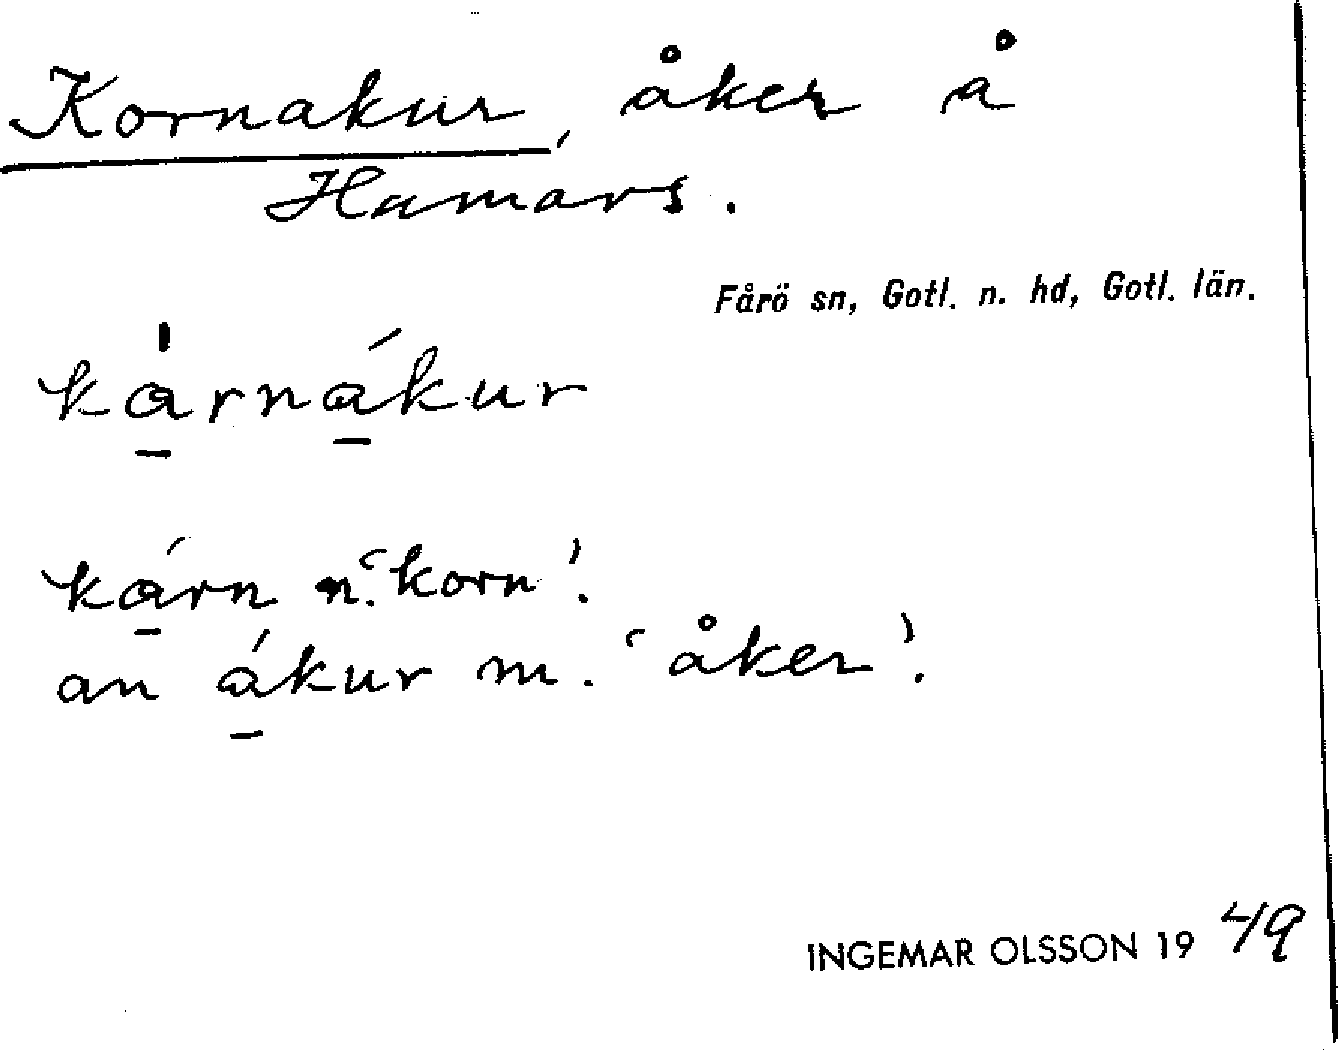 Kornakur, åker å
Hamars.
Fårö sn, Gotl. n. hd, Gotl. län.
ka̱̍rná̱kur
ká̱rn n. ‘korn’.
an á̱kur m. ‘åker’.
INGEMAR OLSSON 19 49